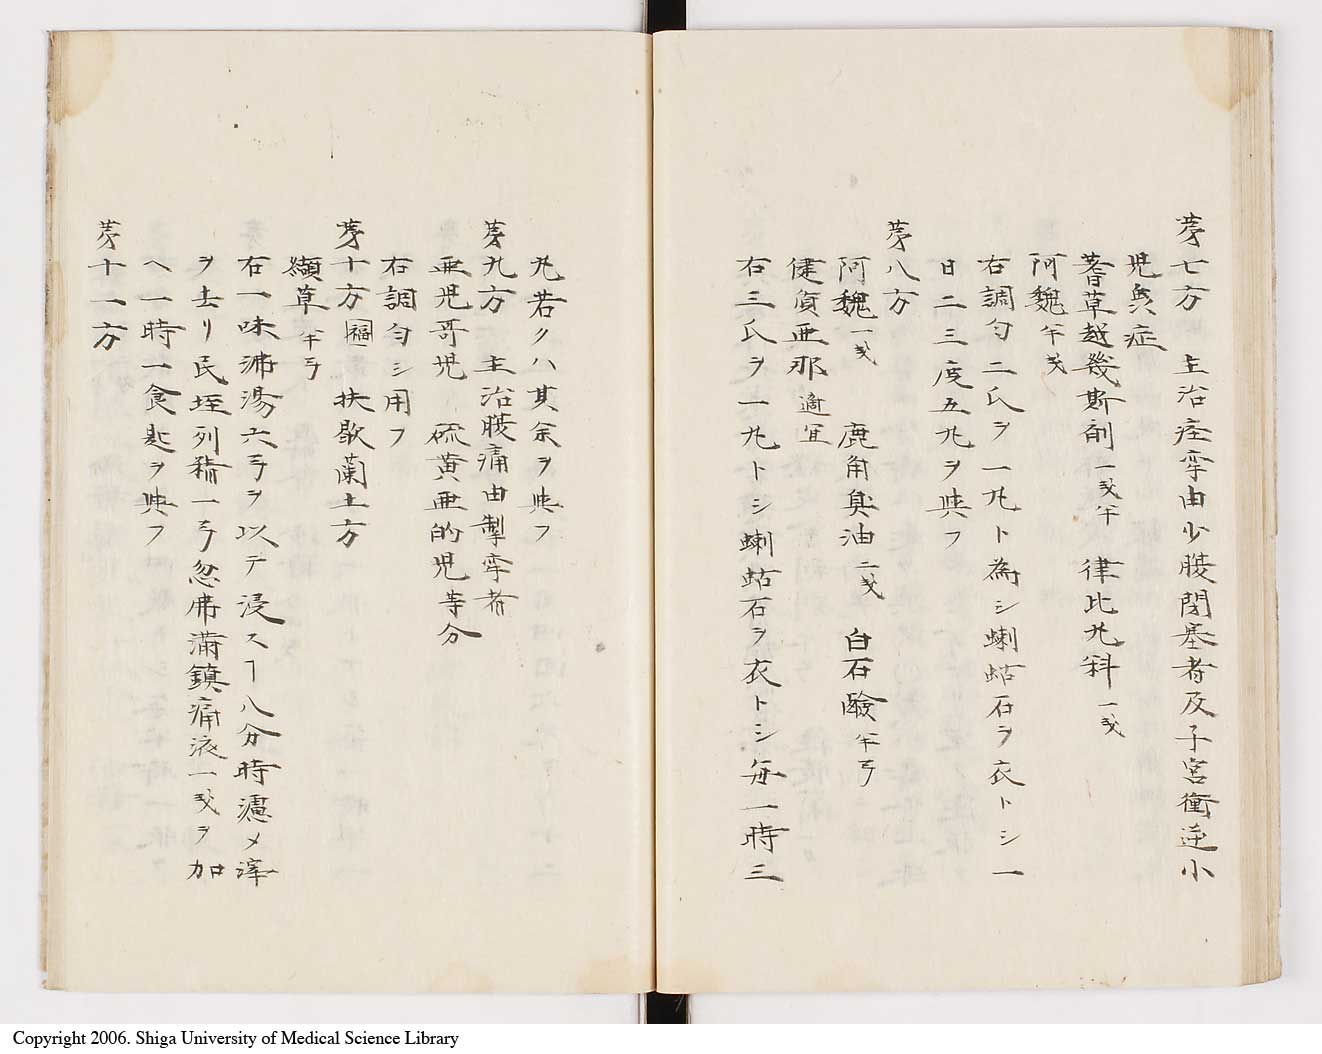 茅七方 主治痙挛由少腹閉塞者及子宮衝逆小
児臭症
蓍草越幾斯剤 一戔半 律比九科 一戔
阿魏 半戔
右調匀二氏ヲ一九ト為シ蝲蛄石ヲ衣トシ一
日二三度五九ヲ㫖フ
茅八方
阿魏 一戔 鹿角臭油 二戔 白石鹸 半弓
健質亜那 適宜
右三氏ヲ一九トシ蝲蛄石ヲ衣トシ毎一時三
九若クハ其余ヲ㫖フ
茅九方 主治腹痛由掣挛者
亜児哥児 硫黄亜的児 等分
右調匀シ用フ
茅十方 扶歇蘭土方
纈草 半弓
右一味沸湯六弓ヲ以テ浸スヿ八分時濾メ滓
ヲ去リ民垤列稀一弓忽弗満鎮痛液一戔ヲ加
ヘ一時一食匙ヲ㫖フ
茅十一方
Copyright 2006. Shiga University of Medical Science Library